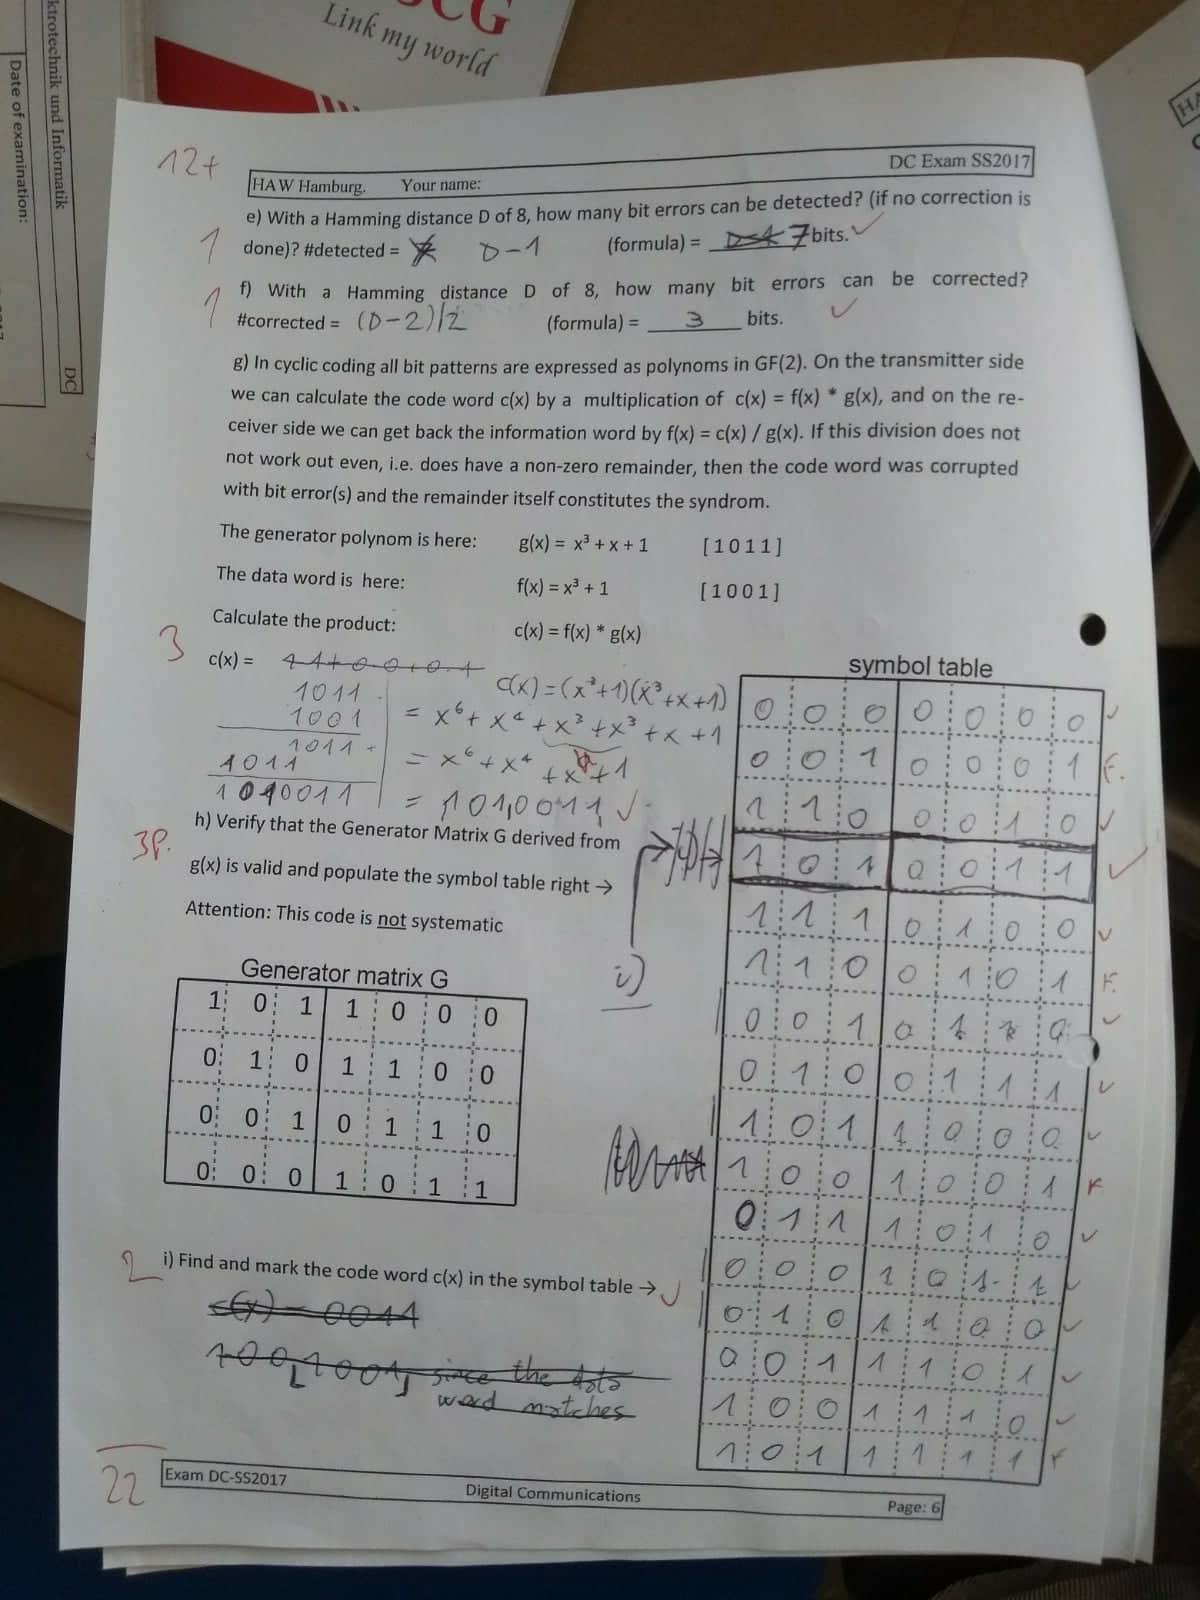 CG
Link my world
ktrotechnik und Informatik
Date of examination:
DC
12+
HAW Hamburg. Your name: DC Exam SS2017
e) With a Hamming distance D of 8, how many bit errors can be detected? (if no correction is
1 done)? #detected = D-1 (formula) = 7 bits. ✓
f) With a Hamming distance D of 8, how many bit errors can be corrected?
1 #corrected = (D-2)/2 (formula) = 3 bits. ✓
g) In cyclic coding all bit patterns are expressed as polynoms in GF(2). On the transmitter side
we can calculate the code word c(x) by a multiplication of c(x) = f(x) * g(x), and on the re-
ceiver side we can get back the information word by f(x) = c(x) / g(x). If this division does not
not work out even, i.e. does have a non-zero remainder, then the code word was corrupted
with bit error(s) and the remainder itself constitutes the syndrom.
The generator polynom is here: g(x) = x³ + x + 1 [1011]
The data word is here: f(x) = x³ + 1 [1001]
Calculate the product: c(x) = f(x) * g(x)
3
c(x) =
1011
1001
1011
1011
1010011
c(x) = (x³+1)(x³+x+1)
= x⁶ + x⁴ + x³ + x³ + x + 1
= x⁶ + x⁴ + x + 1
= 1010011 ✓
3P.
h) Verify that the Generator Matrix G derived from
g(x) is valid and populate the symbol table right →
Attention: This code is not systematic
Generator matrix G
1 0 1 1 0 0 0
0 1 0 1 1 0 0
0 0 1 0 1 1 0
0 0 0 1 0 1 1
i)
symbol table
0 0 0 0 0 0 0 ✓
0 0 1 0 0 0 1 F.
1 1 0 0 0 1 0 ✓
1 0 1 0 0 1 1 ✓
1 1 1 0 1 0 0 ✓
1 1 0 0 1 0 1 F.
0 0 1 0 1 1 0 ✓
0 1 0 0 1 1 1 ✓
1 0 1 1 0 0 0 ✓
1 0 0 1 0 0 1 F
0 1 1 1 0 1 0 ✓
0 0 0 1 0 1 1 ✓
0 1 0 1 1 0 0 ✓
0 0 1 1 1 0 1 ✓
1 0 0 1 1 1 0 ✓
1 0 1 1 1 1 1 F
2 i) Find and mark the code word c(x) in the symbol table → ✓
c(x) = 0011
1001001, since the data
word matches
22
Exam DC-SS2017 Digital Communications Page: 6